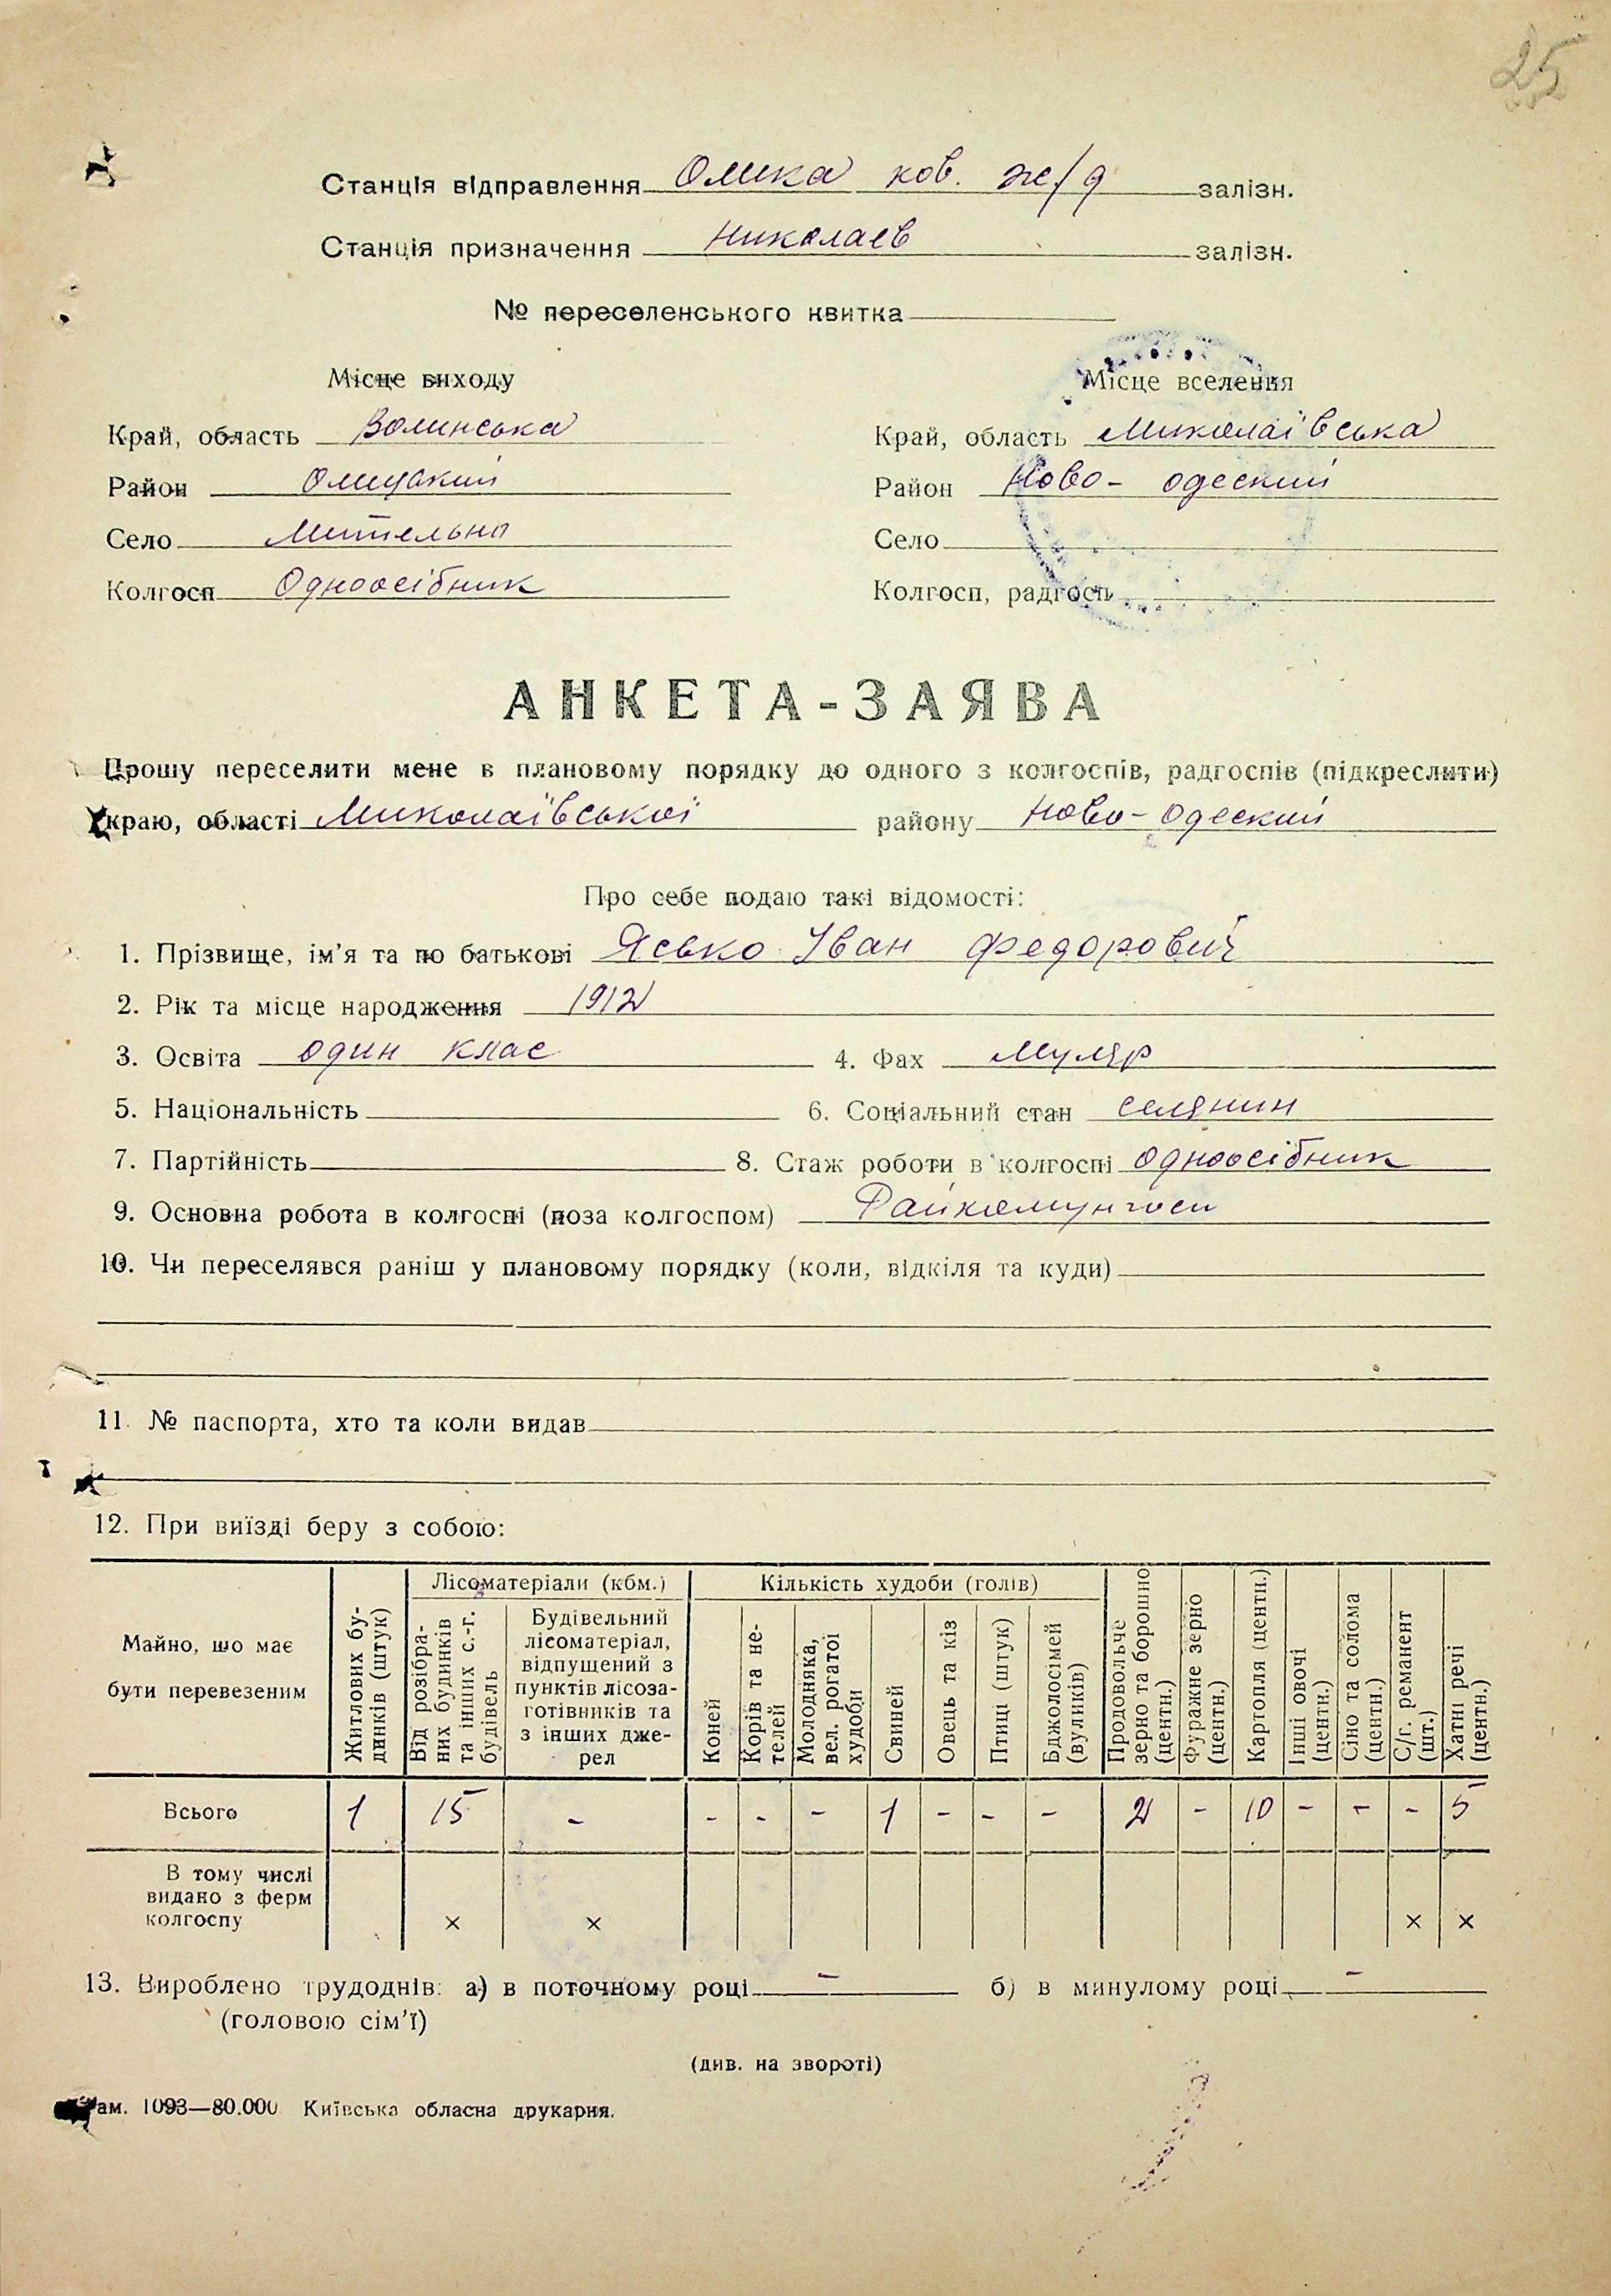 25
Станція відправлення Олика ков. ж/д залізн.
Станція призначення Николаев залізн.
№ переселенського квитка
Місце виходу
Край, область Волинська
Район Олицький
Село Мительно
Колгосп Одноосібник
Місце вселення
Край, область Миколаївська
Район Ново-одеский
Село
Колгосп, радгосп
АНКЕТА-ЗАЯВА
Прошу переселити мене в плановому порядку до одного з колгоспів, радгоспів (підкреслити)
краю, області Миколаївської району Ново-Одеский
Про себе подаю такі відомості:
1. Прізвище, ім'я та по батькові Ясько Іван Федорович
2. Рік та місце народження 1912
3. Освіта один клас 4. Фах Муляр
5. Національність 6. Соціальний стан селянин
7. Партійність 8. Стаж роботи в колгоспі одноосібник
9. Основна робота в колгоспі (поза колгоспом) Райкомунгосп
10. Чи переселявся раніш у плановому порядку (коли, відкіля та куди)
11. № паспорта, хто та коли видав
12. При виїзді беру з собою:
Майно, що має бути перевезеним
Житлових будинків (штук)
Лісоматеріали (кбм.)
Від розібраних будинків та інших с.-г. будівель
Будівельний лісоматеріал, відпущений з пунктів лісозаготівників та з інших джерел
Кількість худоби (голів)
Коней
Корів та нетелей
Молодняка, вел. рогатої худоби
Свиней
Овець та кіз
Птиці (штук)
Бджолосімей (вуликів)
Продовольче зерно та борошно (центн.)
Фуражне зерно (центн.)
Картопля (центн.)
Інші овочі (центн.)
Сіно та солома (центн.)
С/г. реманент (шт.)
Хатні речі (центн.)
Всього 1 15 - - - - 1 - - - 2 - 10 - - - 5
В тому числі видано з ферм колгоспу × × × ×
13. Вироблено трудоднів: а) в поточному році - б) в минулому році -
(головою сім'ї)
(див. на звороті)
ам. 1093—80.000 Київська обласна друкарня.